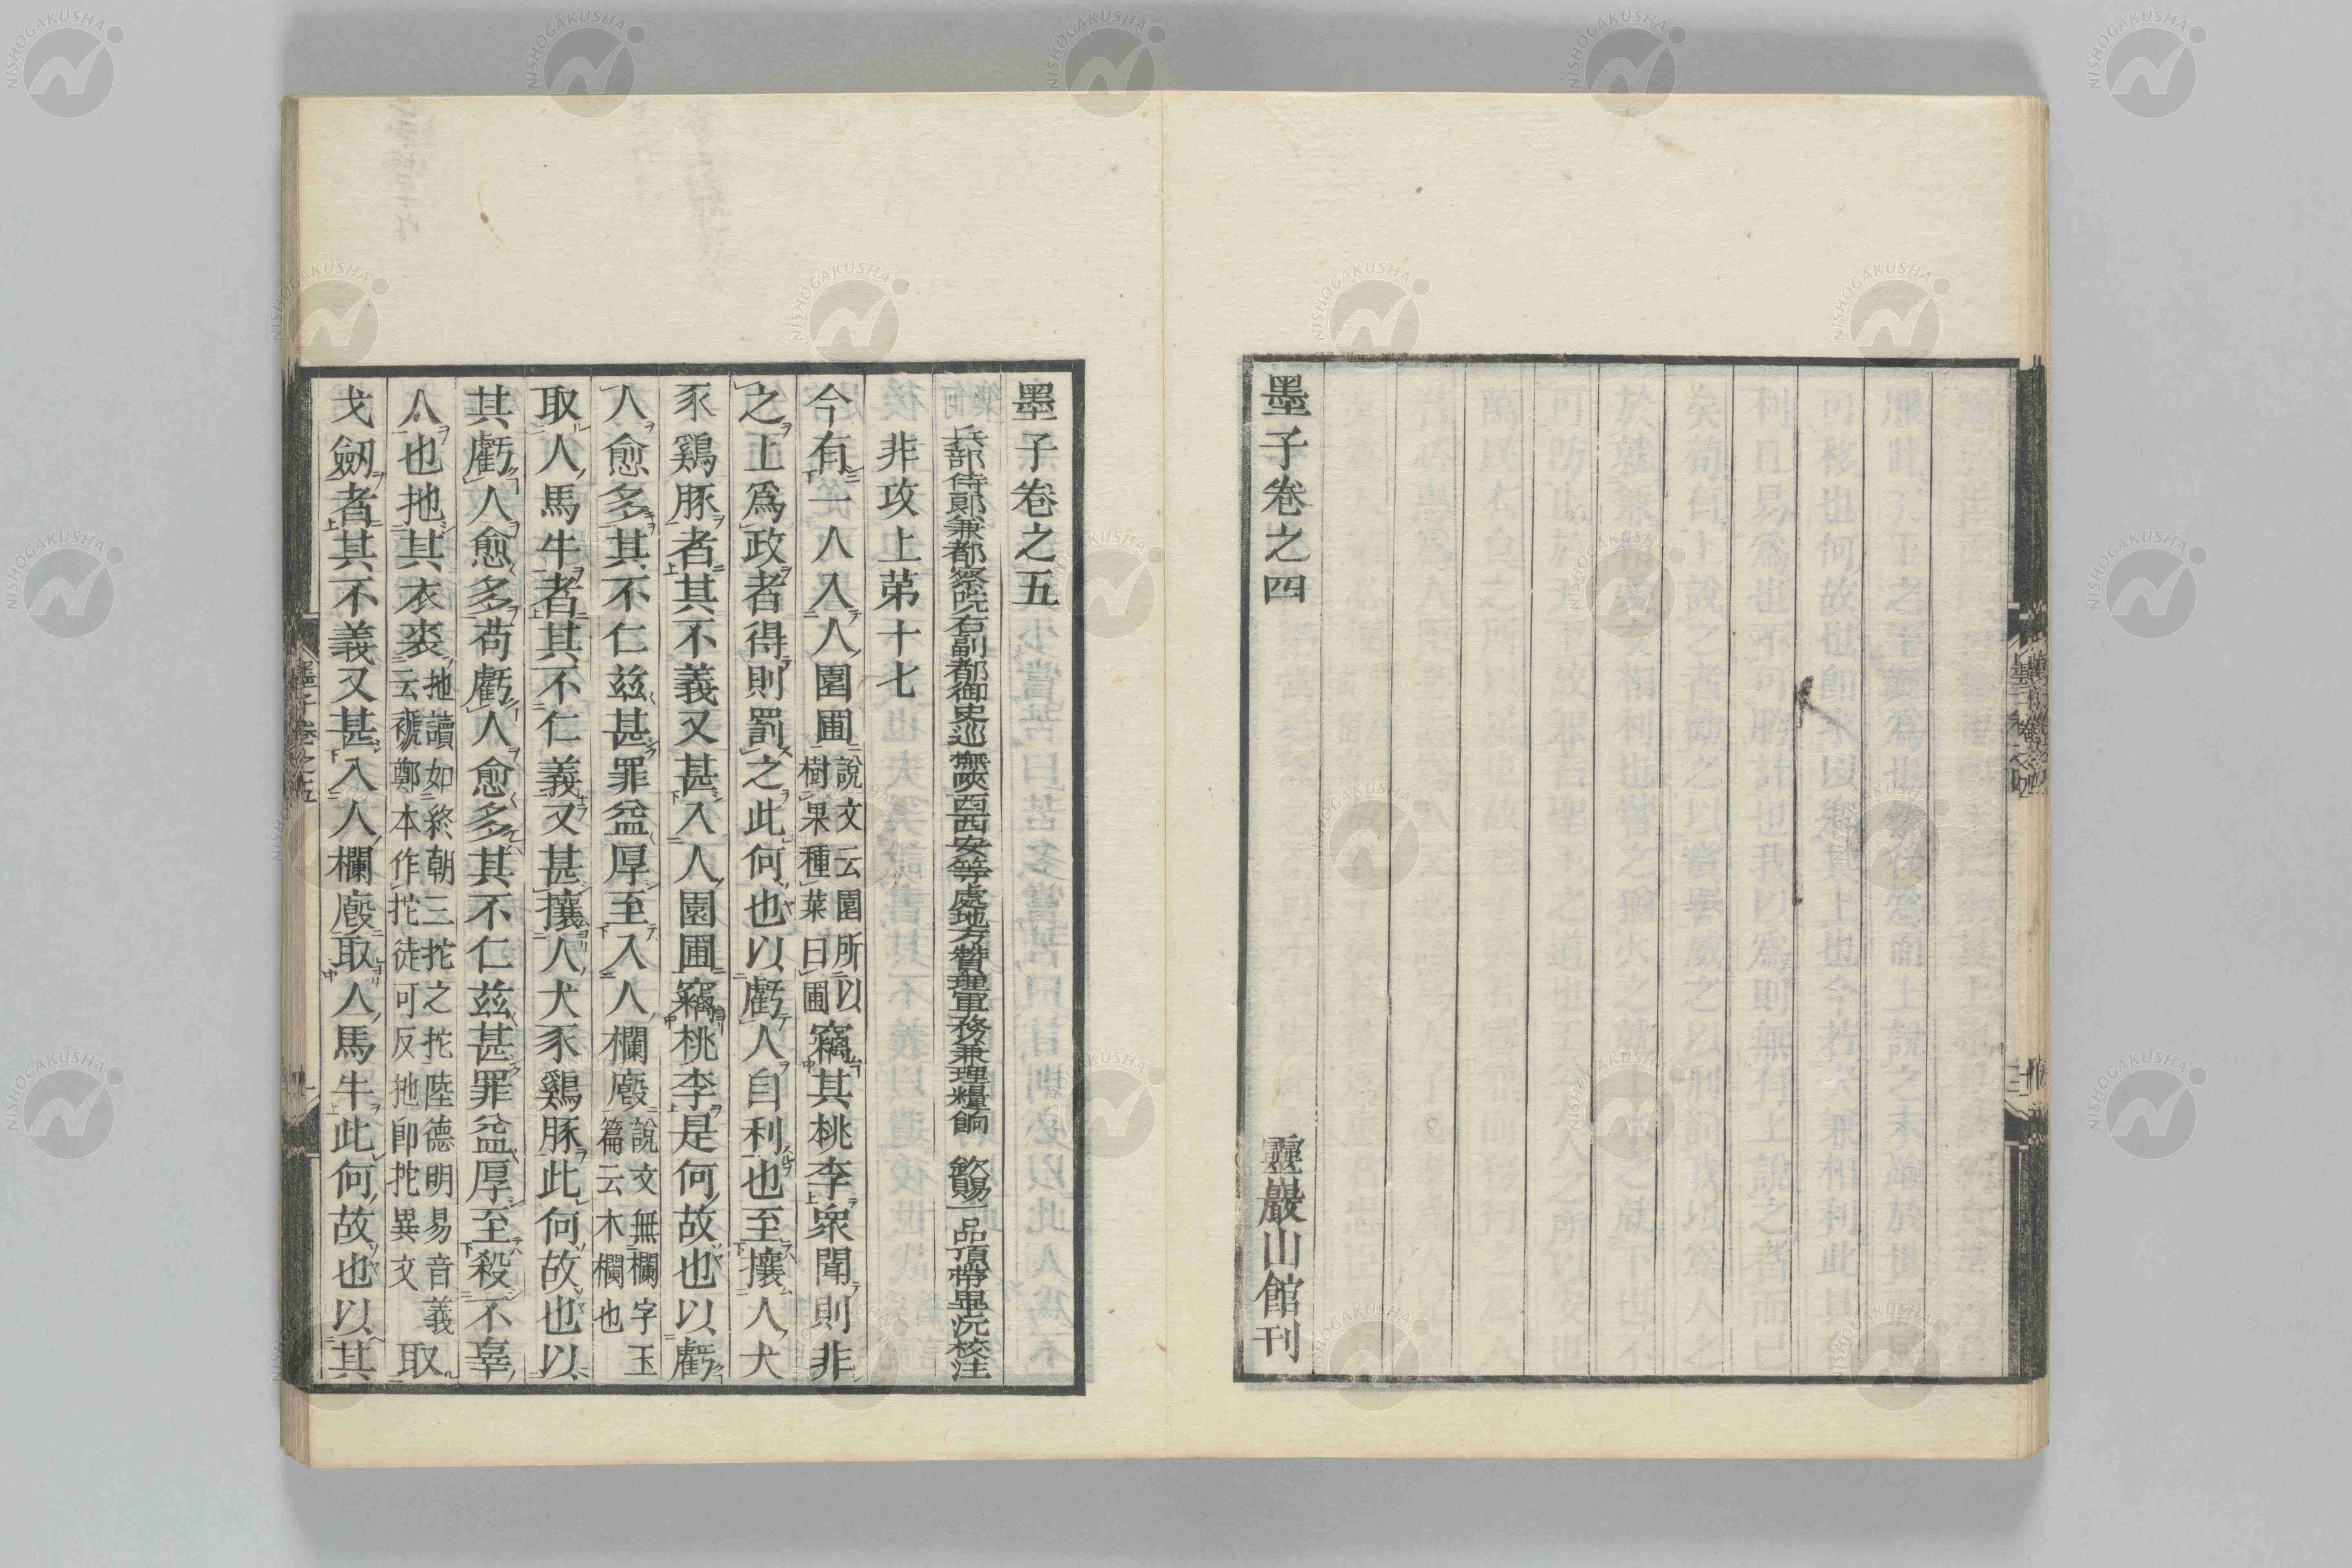 墨子卷之四
靈巖山館刊
墨子卷之五
兵部侍郎兼都察院右副都御史巡撫陝西西安等處地方贊理軍務兼理糧餉　欽賜一品頂帶畢沅校注
非攻上第十七
今有一人入人園圃說文云園所以樹果種菜曰圃竊其桃李衆聞則非
之上爲政者得則罰之此何也以虧人自利也至攘人犬
豕鷄豚者其不義又甚入人園圃竊桃李是何故也以虧
人愈多其不仁兹甚罪益厚至入人欄廄說文無欄字玉篇云木欄也
取人馬牛者其不仁義又甚攘人犬豕鷄豚此何故也以
其虧人愈多苟虧人愈多其不仁兹甚罪益厚至殺不辜
人也扡其衣裘扡讀如終朝三拕之拕陸德明易音義云褫鄭本作拕徒可反扡卽拕異文取
戈劒者其不義又甚入人欄廄取人馬牛此何故也以其
墨子卷之五
NISHOGAKUSHA